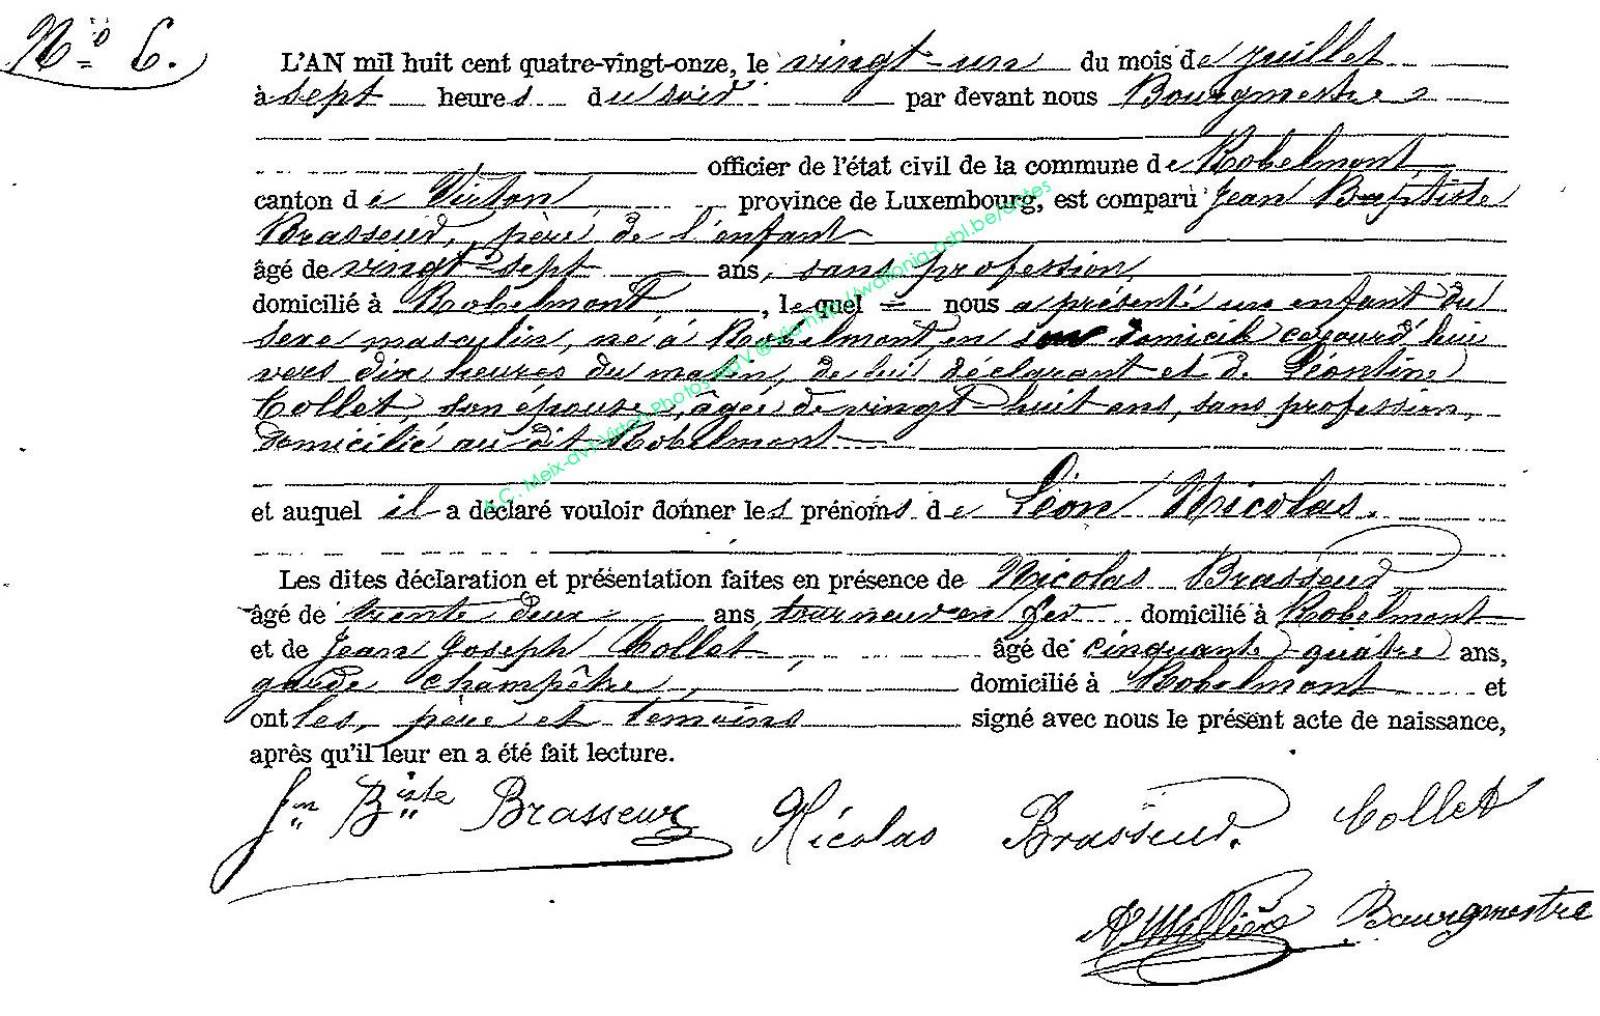 No 6.
L'AN mil huit cent quatre-vingt-onze, le vingt-un du mois de juillet
à sept heures du soir par devant nous Bourgmestre
officier de l'état civil de la commune de Robelmont
canton de Virton province de Luxembourg, est comparu Jean Baptiste
Brasseur, père de l'enfant
âgé de vingt-sept ans, sans profession,
domicilié à Robelmont, lequel nous a présenté un enfant du
sexe masculin, né à Robelmont, en son domicile cejourd'hui
vers dix heures du matin, de lui déclarant et de Léontine
Collet, son épouse, âgée de vingt-huit ans, sans profession,
domicilié au dit Robelmont
et auquel il a déclaré vouloir donner les prénoms de Léon Nicolas.
Les dites déclaration et présentation faites en présence de Nicolas Brasseur
âgé de trente deux ans, tourneur en fer domicilié à Robelmont
et de Jean Joseph Collet, âgé de cinquante-quatre ans,
garde champêtre, domicilié à Robelmont et
ont les, père et temoins signé avec nous le présent acte de naissance,
après qu'il leur en a été fait lecture.
Jn Biste Brasseur Nicolas Brasseur. Collet
Bourgmestre
A.C. Meix-dvt-Virton Photos via http://wallonia-asbl.be/actes